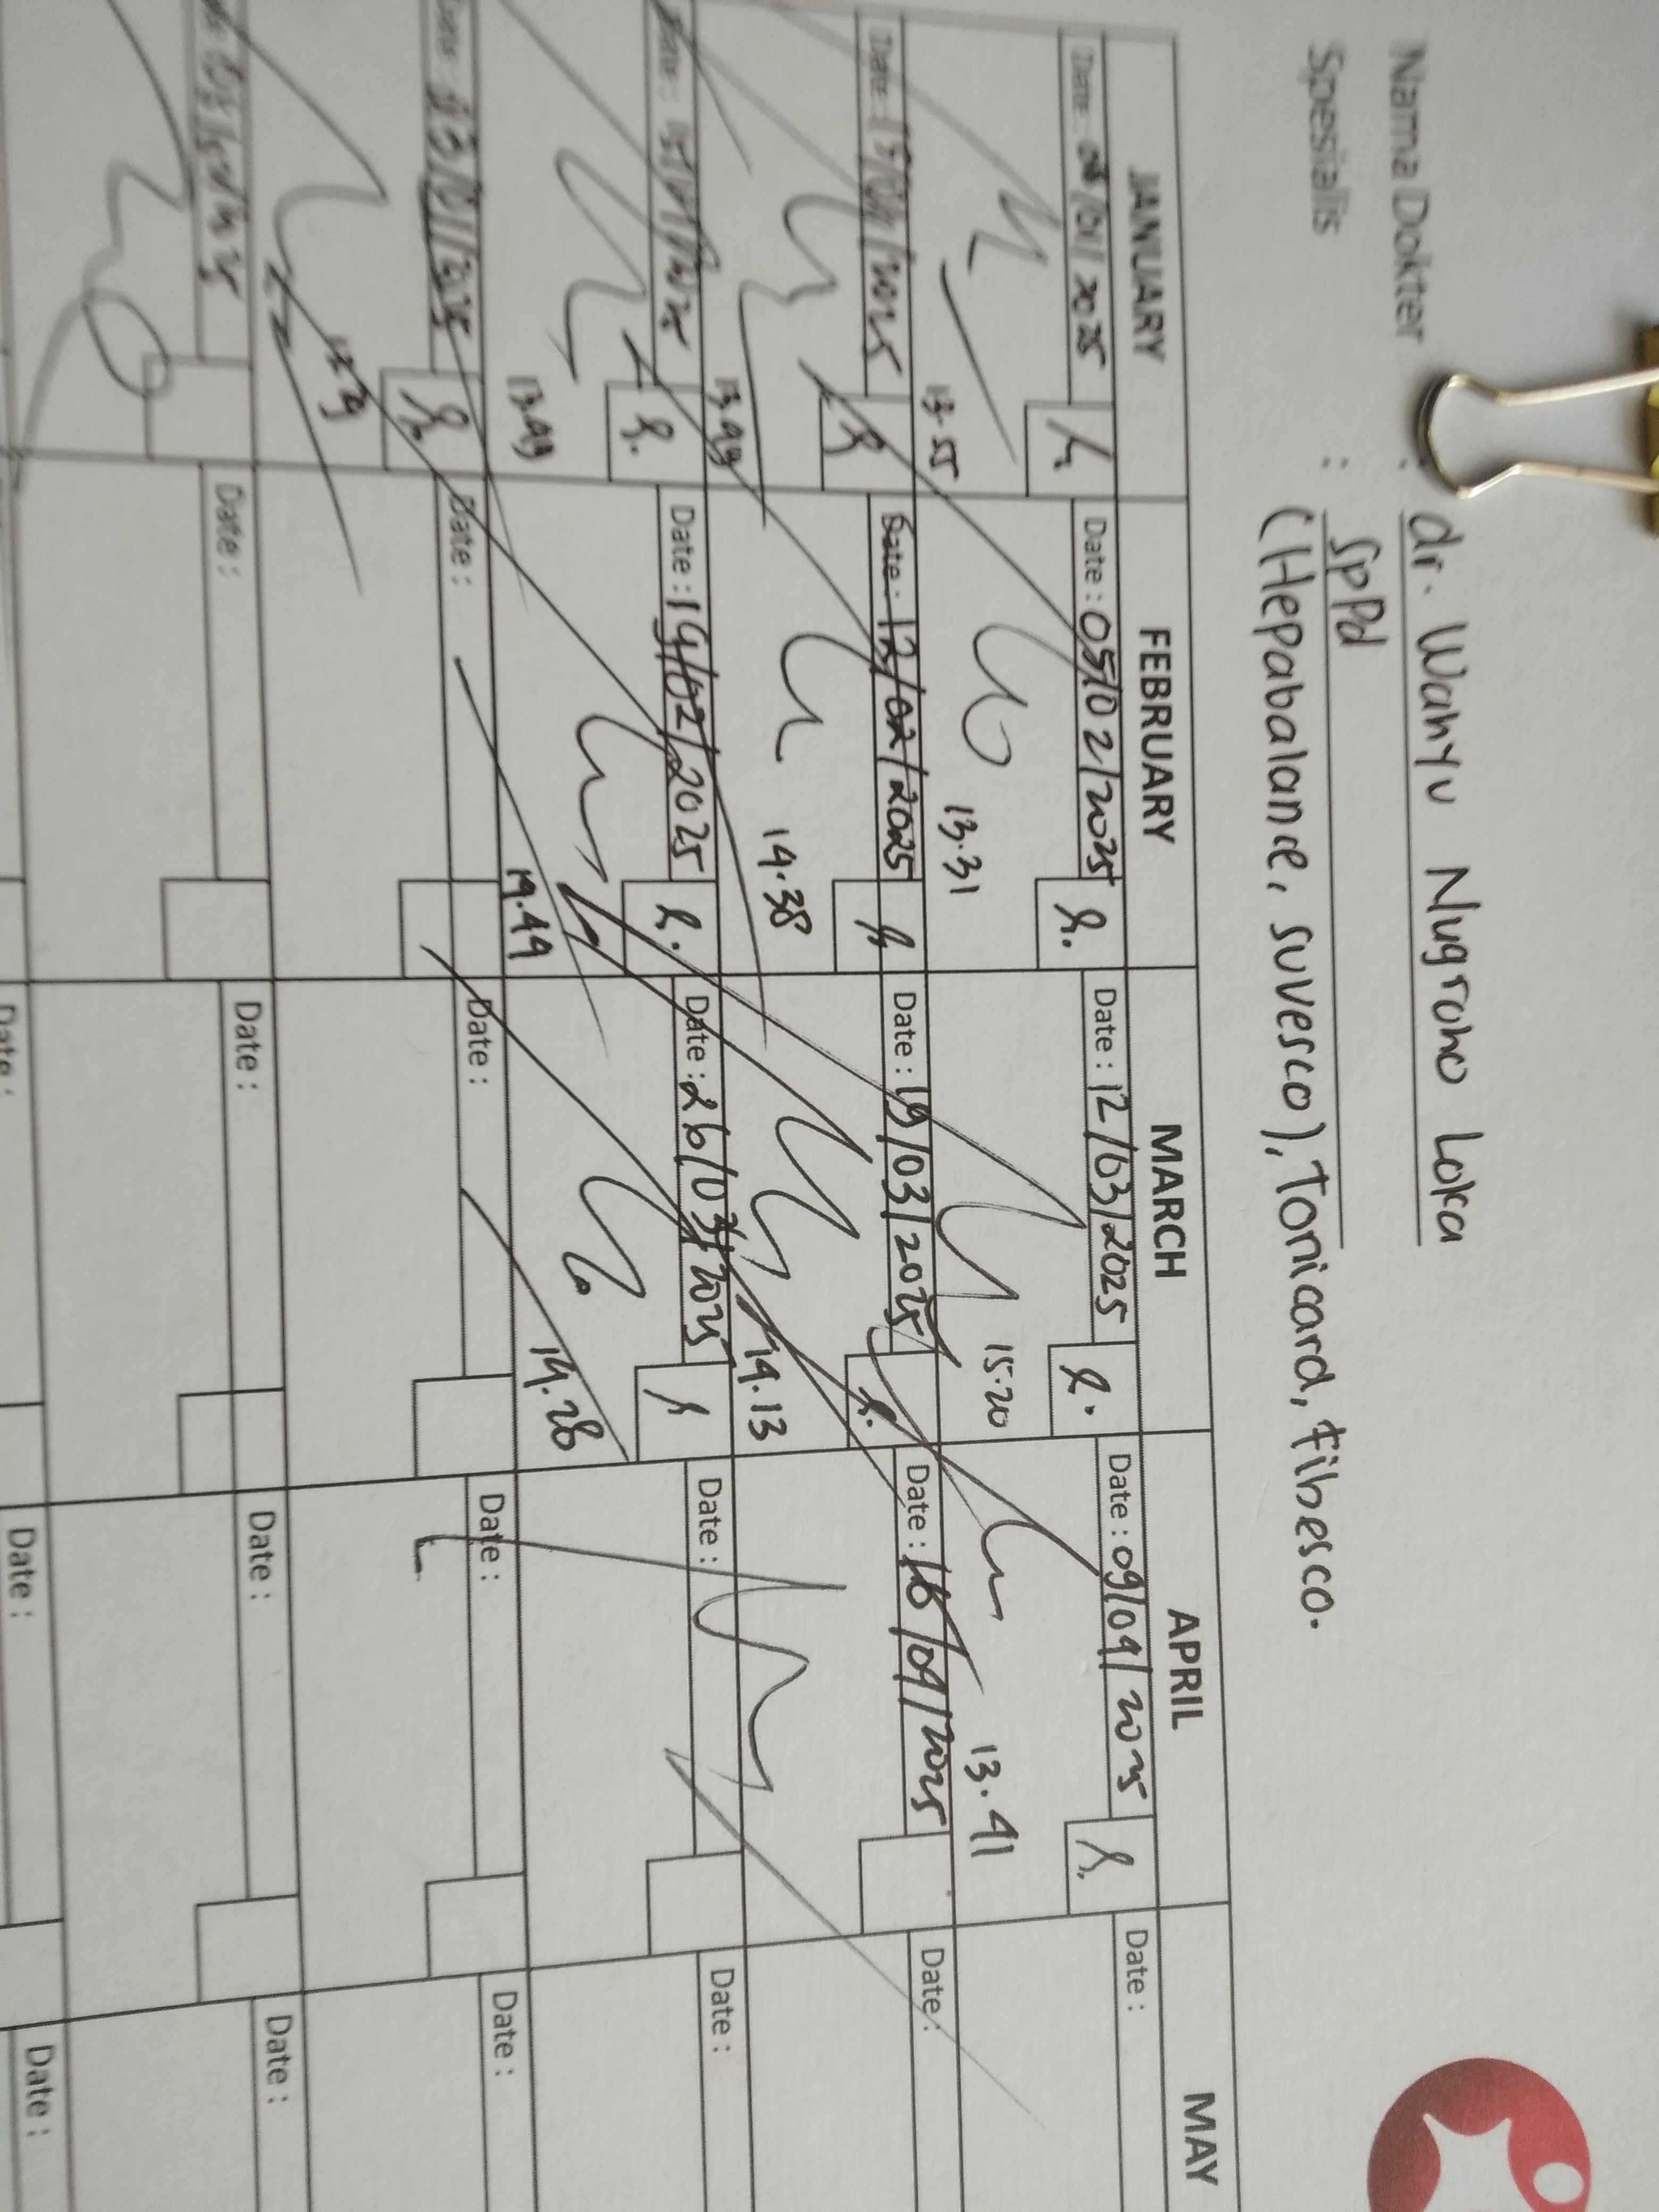 Nama Dokter : dr. Wahyu Nugroho Loka
Spesialis : SpPd
(Hepabalance, suvesco), Tonicard, Fibesco.
JANUARY FEBRUARY MARCH APRIL MAY
Date : /01/2025 Date : 05/02/2025 Date : 12/03/2025 Date : 09/04/2025 Date :
13.55 13.31 15.20 13.41
Date : Date : 12/02/2025 Date : 19/03/2025 Date : 16/04/2025 Date :
13.49 14.38 14.13
Date : Date : 19/02/2025 Date : 26/03/2025 Date : Date :
13.49 14.49 14.28
Date : Date : Date : Date :
Date : Date : Date : Date :
Date : Date : Date :